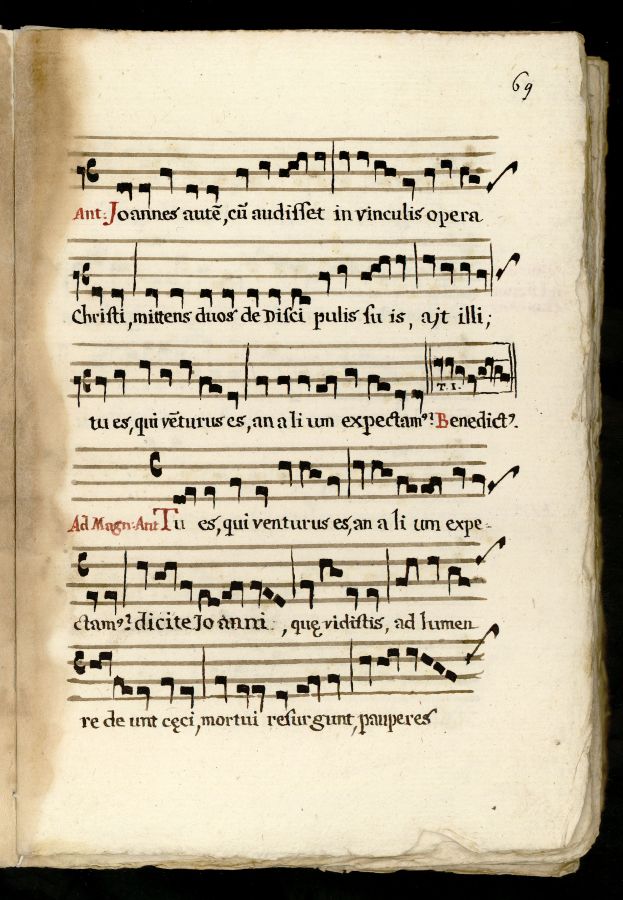 69
Ant: Joannes autē, cū audisset in vinculis opera
Christi, mittens duos de Disci pulis su is, ajt illi;
T. I.
tu es, qui vēturus es, an a li um expectamꝰ? Benedictꝰ.
Ad Magn: Ant Tu es, qui venturus es, an a li um expe-
ctamꝰ? dicite Jo anni, quę vidistis, ad lumen
re de unt cęci, mortui resurgunt, pauperes